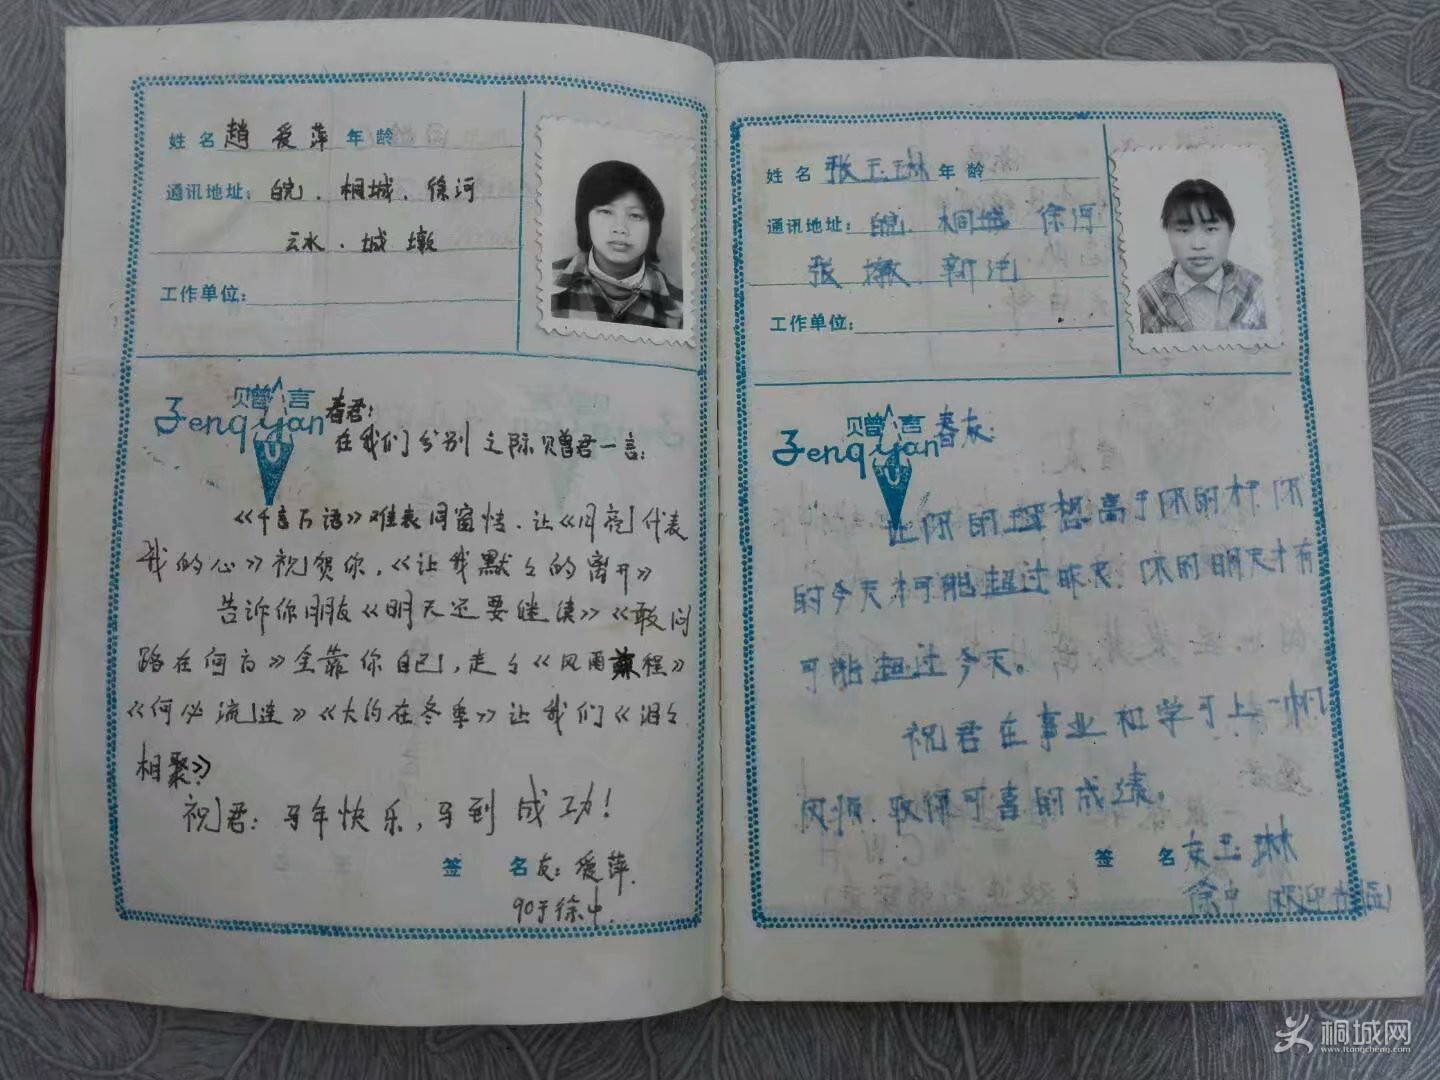 姓名 趙爱萍 年龄
通讯地址: 皖.桐城.徐河
云水.城墩
工作单位:
赠言
Zengyan
春君:
在我们分别之际赠君一言:
《千言万语》难表同窗情.让《月亮代表
我的心》祝贺你,《让我默々的离开》
告诉你朋友《明天还要继续》《敢问
路在何方》全靠你自己,走々《风雨兼程》
《何必流连》《大约在冬季》让我们《泪々
相聚》
祝君:马年快乐,马到成功!
签名 友:爱萍.
90于徐中.
姓名 张玉琳 年龄
通讯地址: 皖.桐城 徐河
张墩 新
工作单位:
赠言
Zengyan
春友:
让你的理想高于你的才.你
的今天才可能超过昨天.你的明天才有
可能超过今天。
祝君在事业和学习上一帆
风顺.取得可喜的成绩。
签名 友玉琳
徐中
桐城网
itongcheng.com